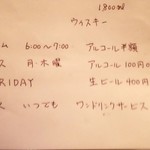 1800ml
ウィスキー
ム 6:00〜7:00 アルコール半額
ス 月・木曜 アルコール100円
RIDAY 生ビール400円
ス いつでも ワンドリンクサービス